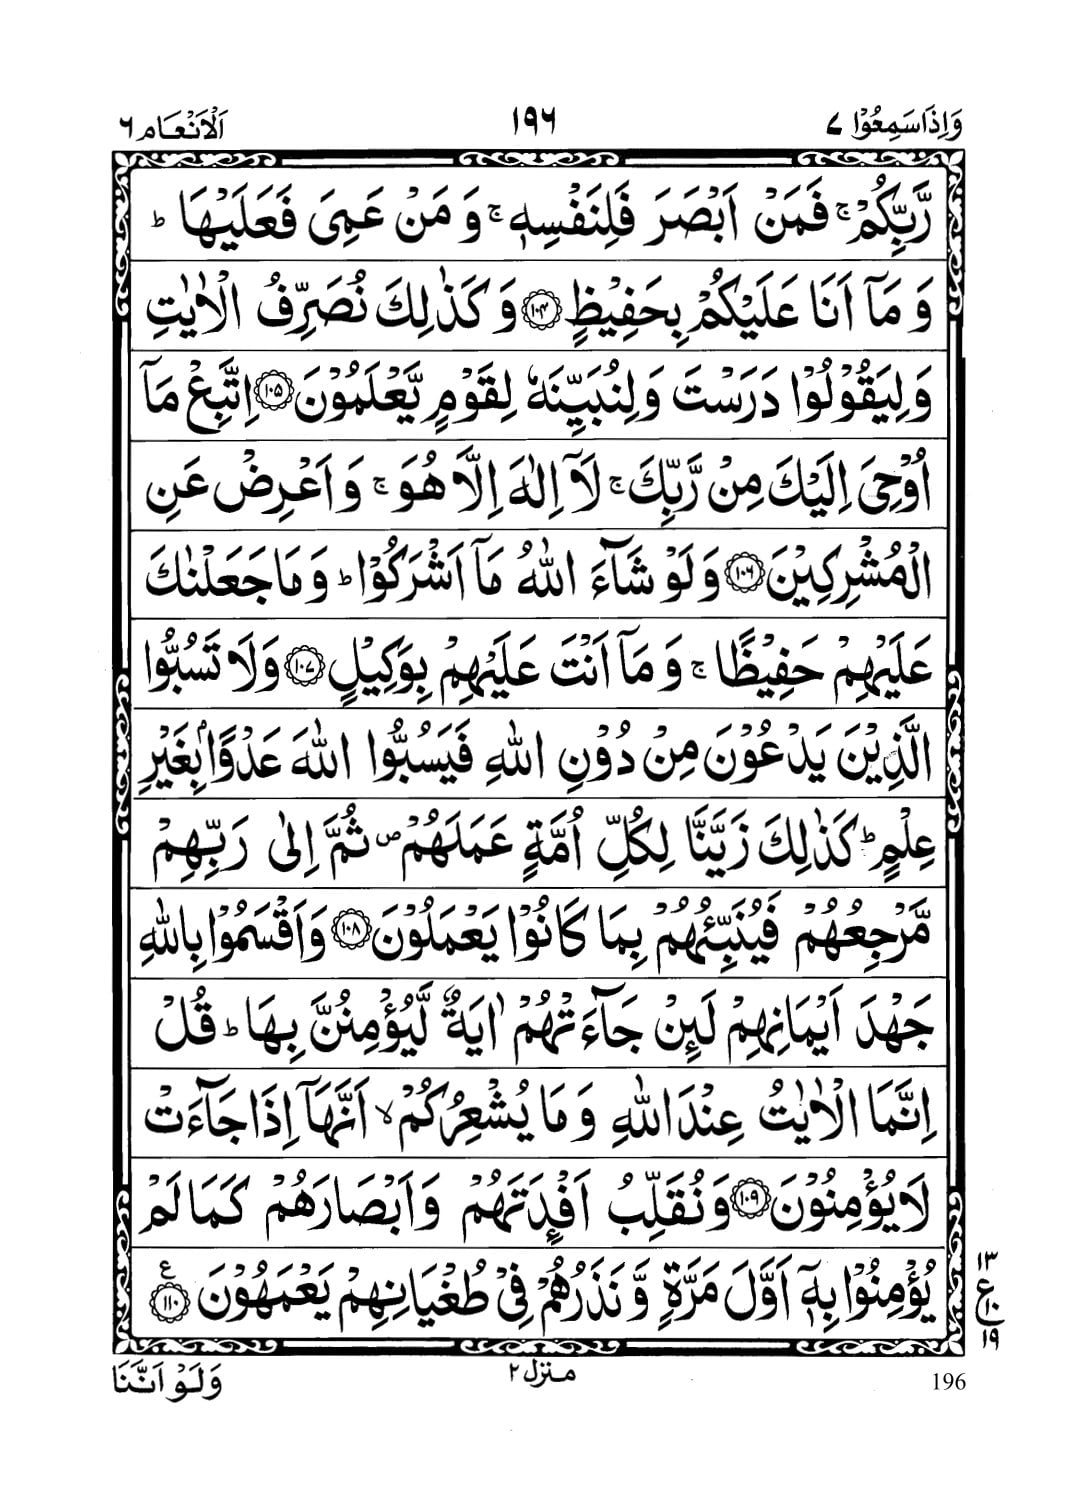 وَاِذَاسَمِعُوۡا ٧
١٩٦
اَلۡاَنۡعَام ٦
رَّبِّكُمۡ ۚ فَمَنۡ اَبۡصَرَ فَلِنَفۡسِهٖ ۚ وَ مَنۡ عَمِىَ فَعَلَيۡهَا ؕ
وَ مَاۤ اَنَا عَلَيۡكُمۡ بِحَفِيۡظٍ ﴿١٠٤﴾ وَ كَذٰلِكَ نُصَرِّفُ الۡاٰيٰتِ
وَلِيَقُوۡلُوۡا دَرَسۡتَ وَلِنُبَيِّنَهٗ لِقَوۡمٍ يَّعۡلَمُوۡنَ ﴿١٠٥﴾ اِتَّبِعۡ مَاۤ
اُوۡحِىَ اِلَيۡكَ مِنۡ رَّبِّكَ ۚ لَاۤ اِلٰهَ اِلَّا هُوَ ۚ وَ اَعۡرِضۡ عَنِ
الۡمُشۡرِكِيۡنَ ﴿١٠٦﴾ وَلَوۡ شَآءَ اللّٰهُ مَاۤ اَشۡرَكُوۡا ؕ وَ مَا جَعَلۡنٰكَ
عَلَيۡهِمۡ حَفِيۡظًا ۚ وَ مَاۤ اَنۡتَ عَلَيۡهِمۡ بِوَكِيۡلٍ ﴿١٠٧﴾ وَلَا تَسُبُّوا
الَّذِيۡنَ يَدۡعُوۡنَ مِنۡ دُوۡنِ اللّٰهِ فَيَسُبُّوا اللّٰهَ عَدۡوًاۢ بِغَيۡرِ
عِلۡمٍ ؕ كَذٰلِكَ زَيَّنَّا لِكُلِّ اُمَّةٍ عَمَلَهُمۡ ۖ ثُمَّ اِلٰى رَبِّهِمۡ
مَّرۡجِعُهُمۡ فَيُنَبِّئُهُمۡ بِمَا كَانُوۡا يَعۡمَلُوۡنَ ﴿١٠٨﴾ وَاَقۡسَمُوۡا بِاللّٰهِ
جَهۡدَ اَيۡمَانِهِمۡ لَئِنۡ جَآءَتۡهُمۡ اٰيَةٌ لَّيُؤۡمِنُنَّ بِهَا ؕ قُلۡ
اِنَّمَا الۡاٰيٰتُ عِنۡدَ اللّٰهِ وَ مَا يُشۡعِرُكُمۡ ۙ اَنَّهَاۤ اِذَا جَآءَتۡ
لَا يُؤۡمِنُوۡنَ ﴿١٠٩﴾ وَنُقَلِّبُ اَفۡـِٕدَتَهُمۡ وَاَبۡصَارَهُمۡ كَمَا لَمۡ
يُؤۡمِنُوۡا بِهٖۤ اَوَّلَ مَرَّةٍ وَّ نَذَرُهُمۡ فِىۡ طُغۡيَانِهِمۡ يَعۡمَهُوۡنَ ﴿١١٠﴾ ع
١٣
ع
١٠
١٩
وَلَوۡ اَنَّنَا
منزل ٢
196